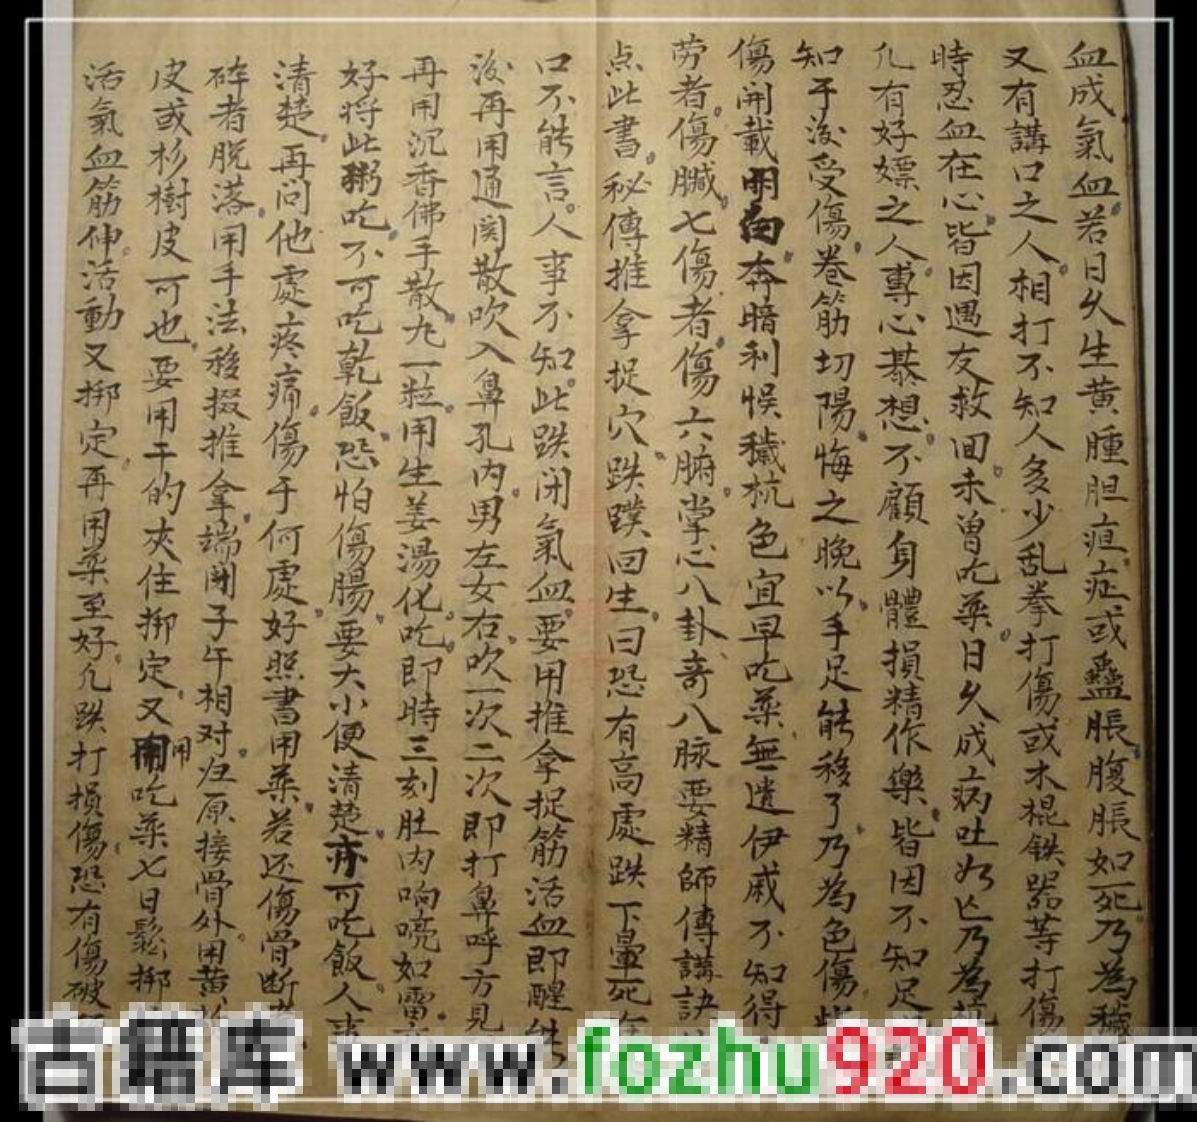 血成氣血若日久生黄腫胆疸症或蠱脹腹脹如死乃為穢
又有講口之人相打不知人多少乱拳打傷或木棍铁器等打傷
時忍血在心皆因遇友救回未曾吃藥日久成病吐
凢有好嫖之人專心慕想不顧身體損精作樂皆因不知足
知于後受傷卷筋切陽悔之晚以手足能移了乃為色傷
傷開載明白奔暗利悮穢杭色宜早吃藥無遺伊戚不知得
劳者傷臟七傷者傷六腑掌心八卦奇八脉要精師傳講訣
点此書秘傳推拿捉穴跌蹼回生曰恐有高處跌下暈死
口不能言人事不知此跌闭氣血要用推拿捉筋活血即醒
後再用通関散吹入鼻孔内男左女右吹一次二次即打鼻呼方見
再用沉香佛手散九一粒用生姜湯化吃即時三刻肚内响喨如雷
好将此粥吃不可吃乾飯恐怕傷腸要大小便清楚亦可吃飯人事
清楚再问他處疼痛傷于何處好照書用藥若还傷骨断
碎者脱落用手法移掇推拿端開子午相对归原接骨外用黄
皮或杉樹皮可也要用干的夾住挷定又用吃藥七日鬆挷
活氣血筋伸活動又挷定再用藥至好凢跌打損傷恐有傷破
古籍库 www.fozhu920.com